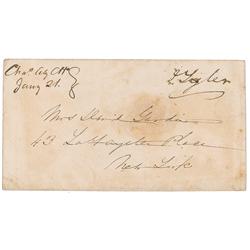 Chas City Ct Hs
Jany 21.
J. Tyler
Mrs David Gardiner
43 LaFayette Place
New York